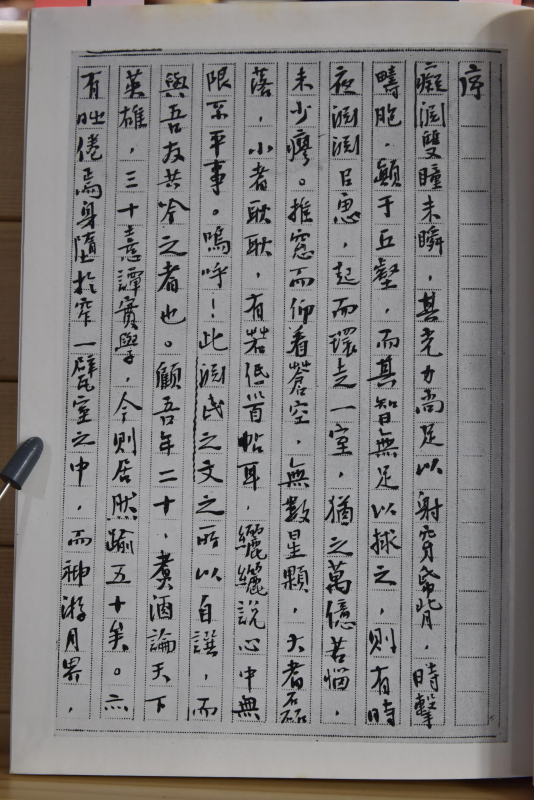 序
癡淵雙瞳未瞬，其光力尚足以射穿紙背，時擊
疇胞，顛于丘壑，而其智無足以捄之，則有時
夜淵淵目思，起而環走一室，猶之萬億苦惱，
未少瘳。推窓而仰看蒼空，無數星顆，大者磊
落，小者耿耿，有若低首帖耳，纚纚說心中無
限不平事。嗚呼！此淵民之文之所以自譔，而
與吾友共吟之者也。顧吾年二十，煑酒論天下
英雄，三十憙譚實學，今則居然踰五十矣。亦
有時倦焉身墮於窄一甓室之中，而神游月界，